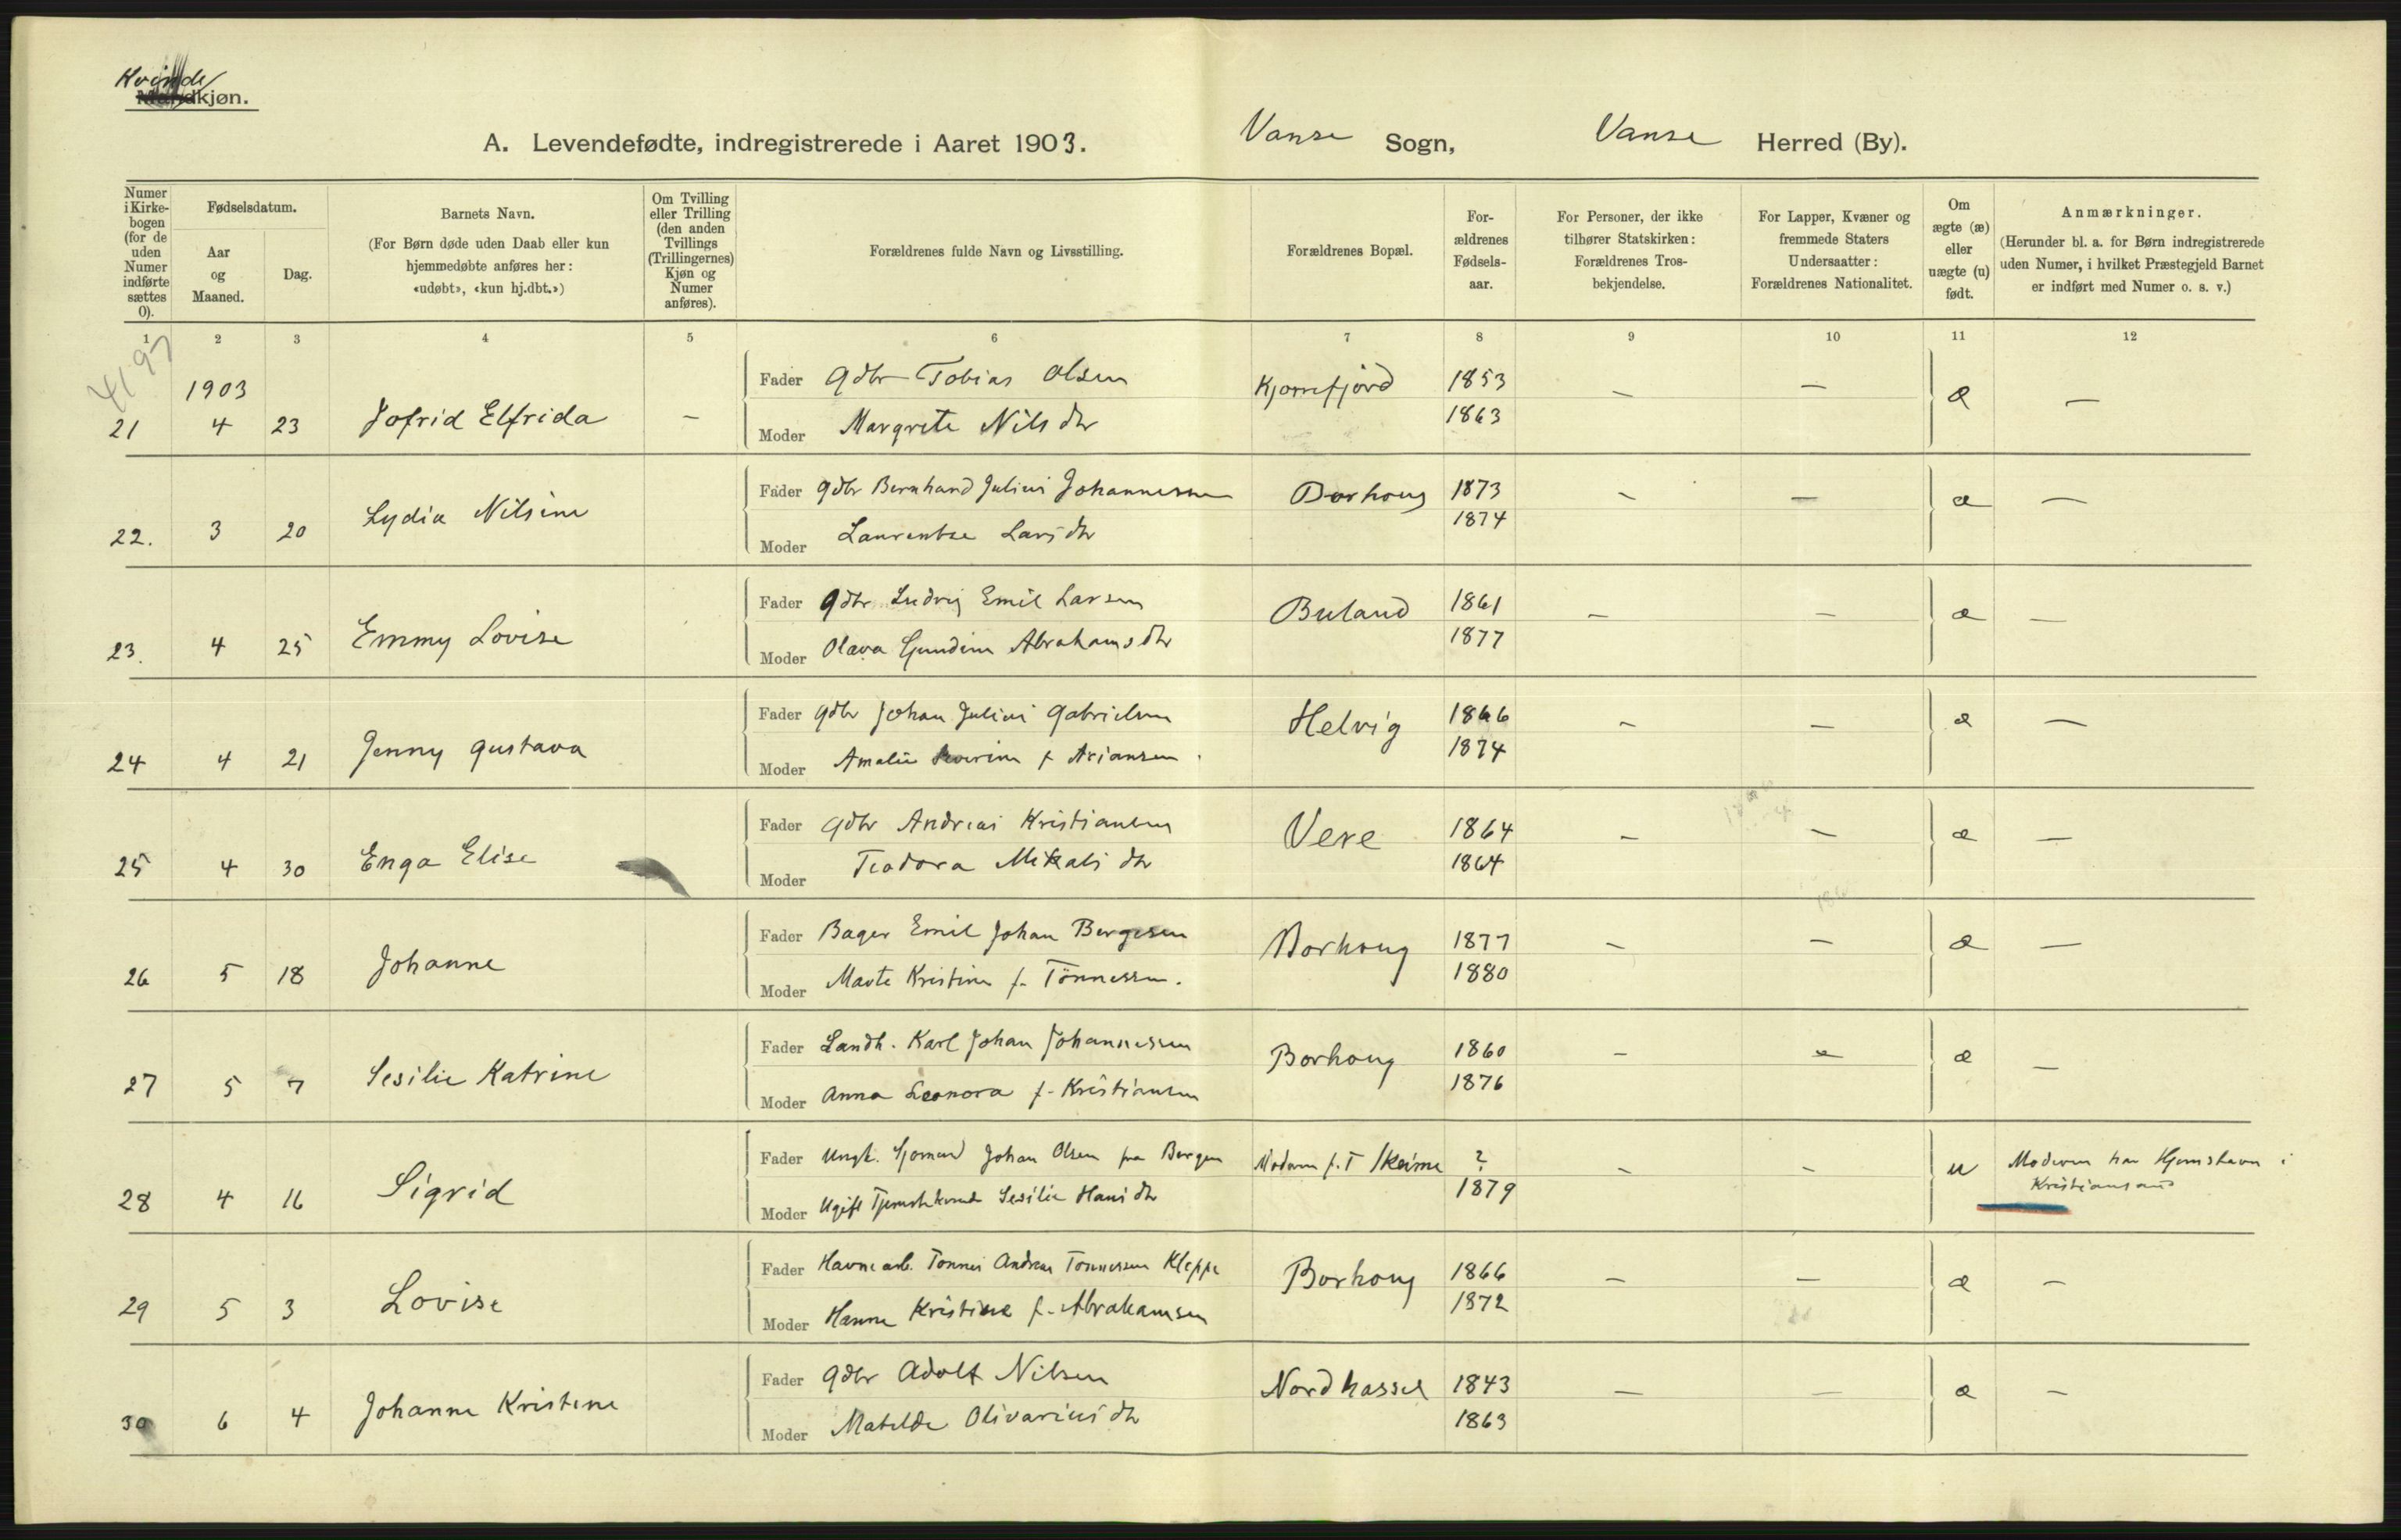 Kvinde
Mandkjøn.
A. Levendefødte, indregistrerede i Aaret 1903. Vanse Sogn, Vanse Herred (By).
Numer i Kirke-bogen (for de uden Numer indførte sættes 0).
Fødselsdatum.
Aar og Maaned.
Dag.
Barnets Navn.
(For Børn døde uden Daab eller kun hjemmedøbte anføres her: «udøbt», «kun hj.dbt.»)
Om Tvilling eller Trilling (den anden Tvillings (Trillingernes) Kjøn og Numer anføres).
Forældrenes fulde Navn og Livsstilling.
Forældrenes Bopæl.
For-ældrenes Fødsels-aar.
For Personer, der ikke tilhører Statskirken: Forældrenes Tros-bekjendelse.
For Lapper, Kvæner og fremmede Staters Undersaatter: Forældrenes Nationalitet.
Om ægte (æ) eller uægte (u) født.
Anmærkninger.
(Herunder bl. a. for Børn indregistrerede uden Numer, i hvilket Præstegjeld Barnet er indført med Numer o. s. v.)
1 2 3 4 5 6 7 8 9 10 11 12
4197
1903
Fader Gdbr Tobias Olsen Kjørrefjord 1853 — — æ —
21 4 23 Jofrid Elfrida — Moder Margrete Nilsdtr 1863
Fader Gdbr Bernhard Julius Johannessen Borhoug 1873 — — æ —
22. 3 20 Lydia Nilsine Moder Laurentse Larsdtr 1874
Fader Gdbr Ludvig Emil Larsen Buland 1861 — — æ —
23. 4 25 Emmy Lovise Moder Olava Gundine Abrahamsdtr 1877
Fader Gdbr Johan Julius Gabrielsen Helvig 1866 — — æ —
24 4 21 Jenny Gustava Moder Amalie f Ariansen 1874
Fader Gdbr Andreas Kristiansen Vere 1864 — — æ —
25 4 30 Enga Elise Moder Teodora Mikalsdtr 1864
Fader Bager Emil Johan Bergesen Borhoug 1877 — — æ —
26 5 18 Johanne Moder Marte Kristine f. Tönnessen. 1880
Fader Landh. Karl Johan Johannessen Borhoug 1860 — — æ —
27 5 7 Sesilie Katrine Moder Anna Leonora f. Kristiansen 1876
Fader Ungk. Sjømand Johan Olsen fra Bergen Moderen f. T Skeime ? — — u Moderen har Hjemstavn i
Kristiansand
28 4 16 Sigrid Moder Ugift Sesilie Hansdtr 1879
Fader Havnearb. Tønnes Andreas Tønnessen Kleppe Borhoug 1866 — — æ —
29 5 3 Lovise Moder Hanne Kristine f. Abrahamsen 1872
Fader Gdbr Adolf Nilsen Nordhassel 1843 — — æ —
30 6 4 Johanne Kristine Moder Matilde Olivariusdtr 1863